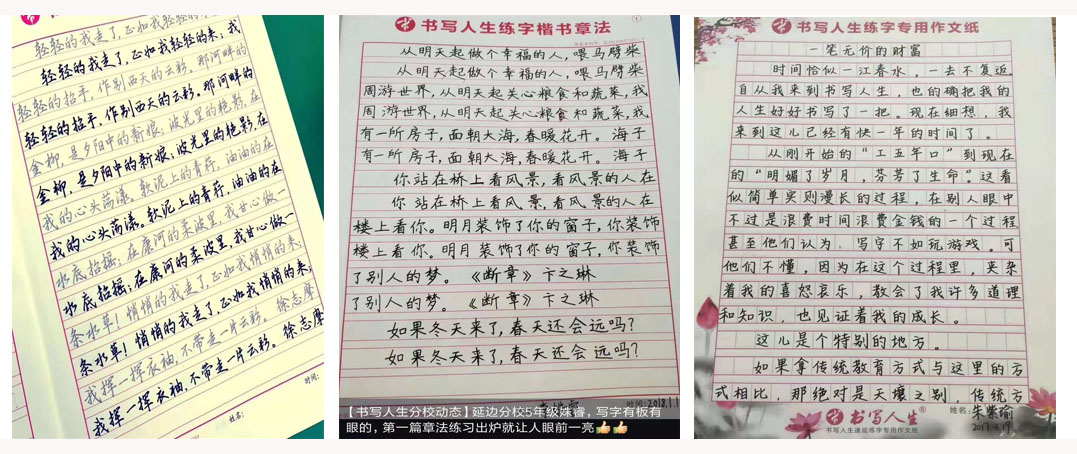 轻轻的我走了,正如我轻轻的来;我
轻轻的我走了,正如我轻轻的来;我
轻轻的招手,作别西天的云彩。那河畔的
轻轻的招手,作别西天的云彩。那河畔的
金柳,是夕阳中的新娘;波光里的艳影,在
金柳,是夕阳中的新娘;波光里的艳影,在
我的心头荡漾。软泥上的青荇,油油的在
我的心头荡漾。软泥上的青荇,油油的在
水底招摇;在康河的柔波里,我甘心做一
水底招摇;在康河的柔波里,我甘心做一
条水草!悄悄的我走了,正如我悄悄的来;
条水草!悄悄的我走了,正如我悄悄的来;
我挥一挥衣袖,不带走一片云彩。徐志摩
我挥一挥衣袖,不带走一片云彩。徐志摩
姓名:
时间:
书写人生练字楷书章法
从明天起做个幸福的人,喂马劈柴
从明天起做个幸福的人,喂马劈柴
周游世界,从明天起关心粮食和蔬菜,我
周游世界,从明天起关心粮食和蔬菜,我
有一所房子,面朝大海,春暖花开。海子
有一所房子,面朝大海,春暖花开。海子
你站在桥上看风景,看风景的人在
你站在桥上看风景,看风景的人在
楼上看你。明月装饰了你的窗子,你装饰
楼上看你。明月装饰了你的窗子,你装饰
了别人的梦。《断章》卞之琳
了别人的梦。《断章》卞之琳
如果冬天来了,春天还会远吗?
如果冬天来了,春天还会远吗?
时间:2018.1.1
【书写人生分校动态】延边分校5年级姝睿,写字有板有
眼的,第一篇章法练习出炉就让人眼前一亮👍👍
书写人生练字专用作文纸
一笔无价的财富
时间恰似一江春水,一去不复返。
自从我来到书写人生,也的确把我的
人生好好书写了一把。现在细想,我
来到这儿已经有快一年的时间了。
从刚开始的“工五年口”到现在
的“明媚了岁月,芬芳了生命”。这看
似简单实则漫长的过程,在别人眼中
不过是浪费时间浪费金钱的一个过程
甚至他们认为,写字不如玩游戏。可
他们不懂,因为在这个过程里,夹杂
着我的喜怒哀乐,教会了我许多道理
和知识,也见证着我的成长。
这儿是个特别的地方。
如果拿传统教育方式与这里的方
式相比,那绝对是天壤之别,传统方
书写人生®
书写人生速成练字专用作文纸
姓名:朱紫瑜